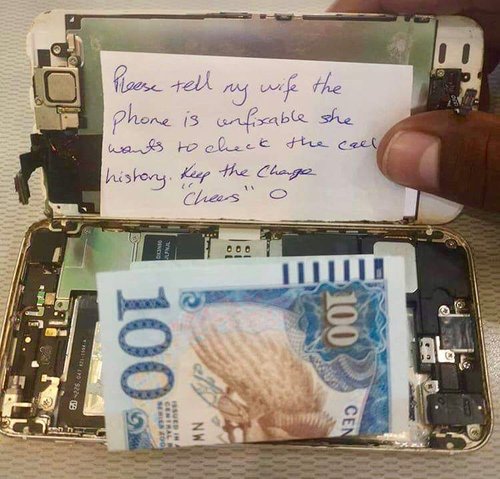 Please tell my wife the
phone is unfixable she
wants to check the call
history. Keep the Change
"Cheers" O
100
100
CEN
NW
ISSUED IN
CENTRAL